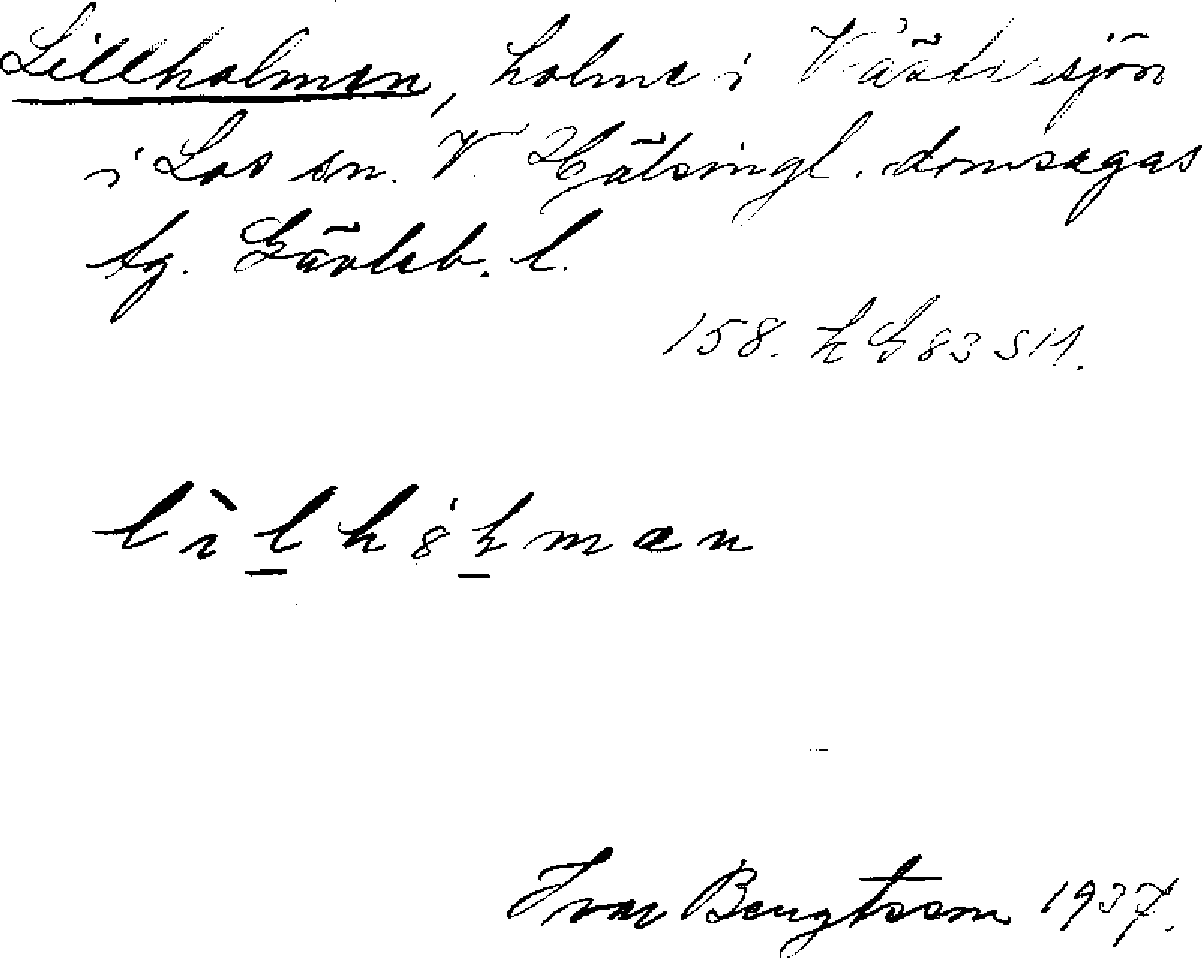 Lillholmen, holme i Växsjön
i Los sn. V. Hälsingl. domsagas
tg. Gävleb. l.
158. H G 83 SH.
lìlhȯlman
Ivar Bengtsson 1937.